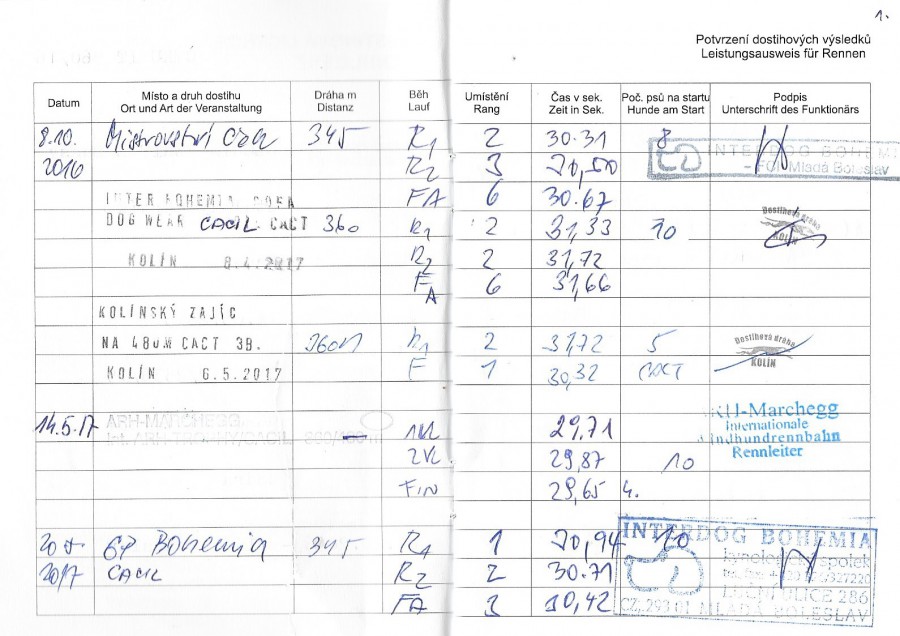 1.
Potvrzení dostihových výsledků
Leistungsausweis für Rennen
Datum Místo a druh dostihu Dráha m Běh Umístění Čas v sek. Poč. psů na startu Podpis
Ort und Art der Veranstaltung Distanz Lauf Rang Zeit in Sek. Hunde am Start Unterschrift des Funktionärs
8.10. Mistrovství 345 R1 2 30.31 8 INTERDOG BOHEMIA
2016 R2 3 FCI Mladá Boleslav
INTER BOHEMIA FA 6 30.67
DOG WEAR CACIL CACT 360 R1 2 31,33 10 Dostihová dráha KOLÍN
KOLÍN 8.4.2017 R2 2 31,72
FA 6 31,66
KOLÍNSKÝ ZAJÍC
NA 480M CACT 3B. 360m R1 2 31,72 5 Dostihová dráha
KOLÍN 6.5.2017 F 1 30,32 CACT KOLÍN
14.5.17 ARH-MARCHEGG -Marchegg
Internationale
1VL 29,71 Windhundrennbahn
Rennleiter
2VL 29,87 10
FIN 29,65 4.
GP Bohemia 345 R1 1 10 INTERDOG BOHEMIA
2017 CACIL R2 2 30.71 kynologický spolek
LUČNÍ ULICE 286
FA 3 CZ, 293 01 MLADÁ BOLESLAV